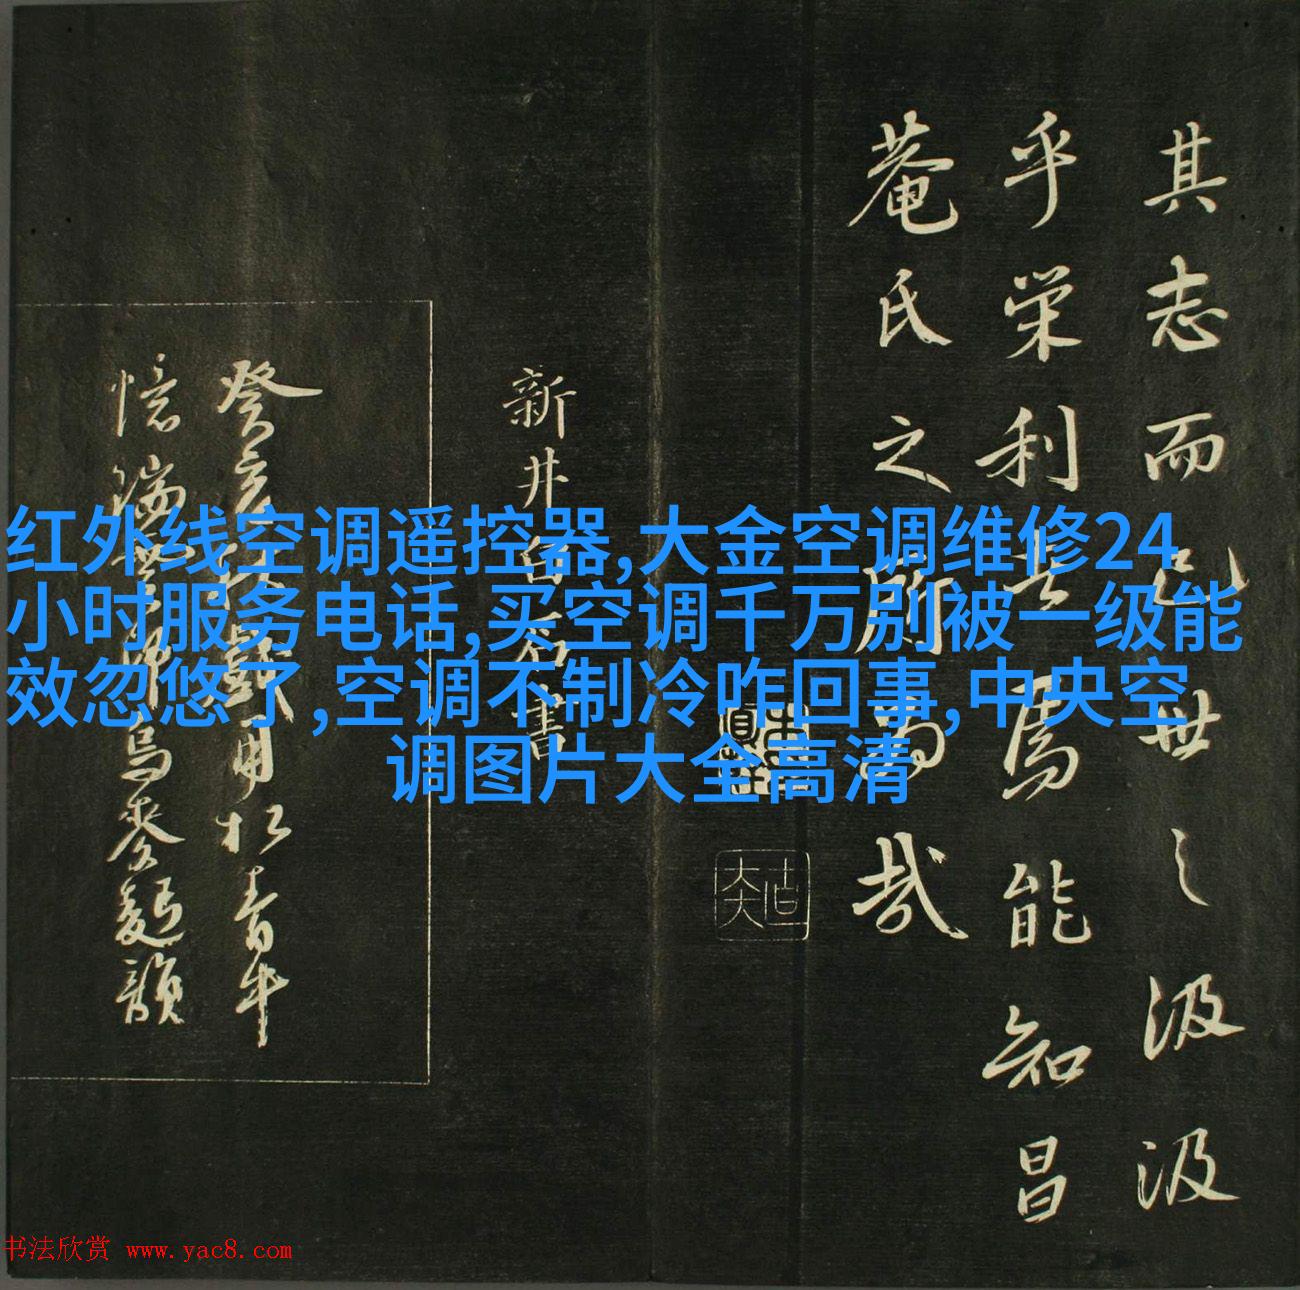 其志而已世之汲汲
乎栄利者焉能知昌
菴氏之所為哉
新井白石書
癸亥
用松青年
憶瑞
烏麥
韻
红外线空调遥控器,大金空调维修24
小时服务电话,买空调千万别被一级能
效忽悠了,空调不制冷咋回事,中央空
调图片大全高清
书法欣赏 www.yac8.com